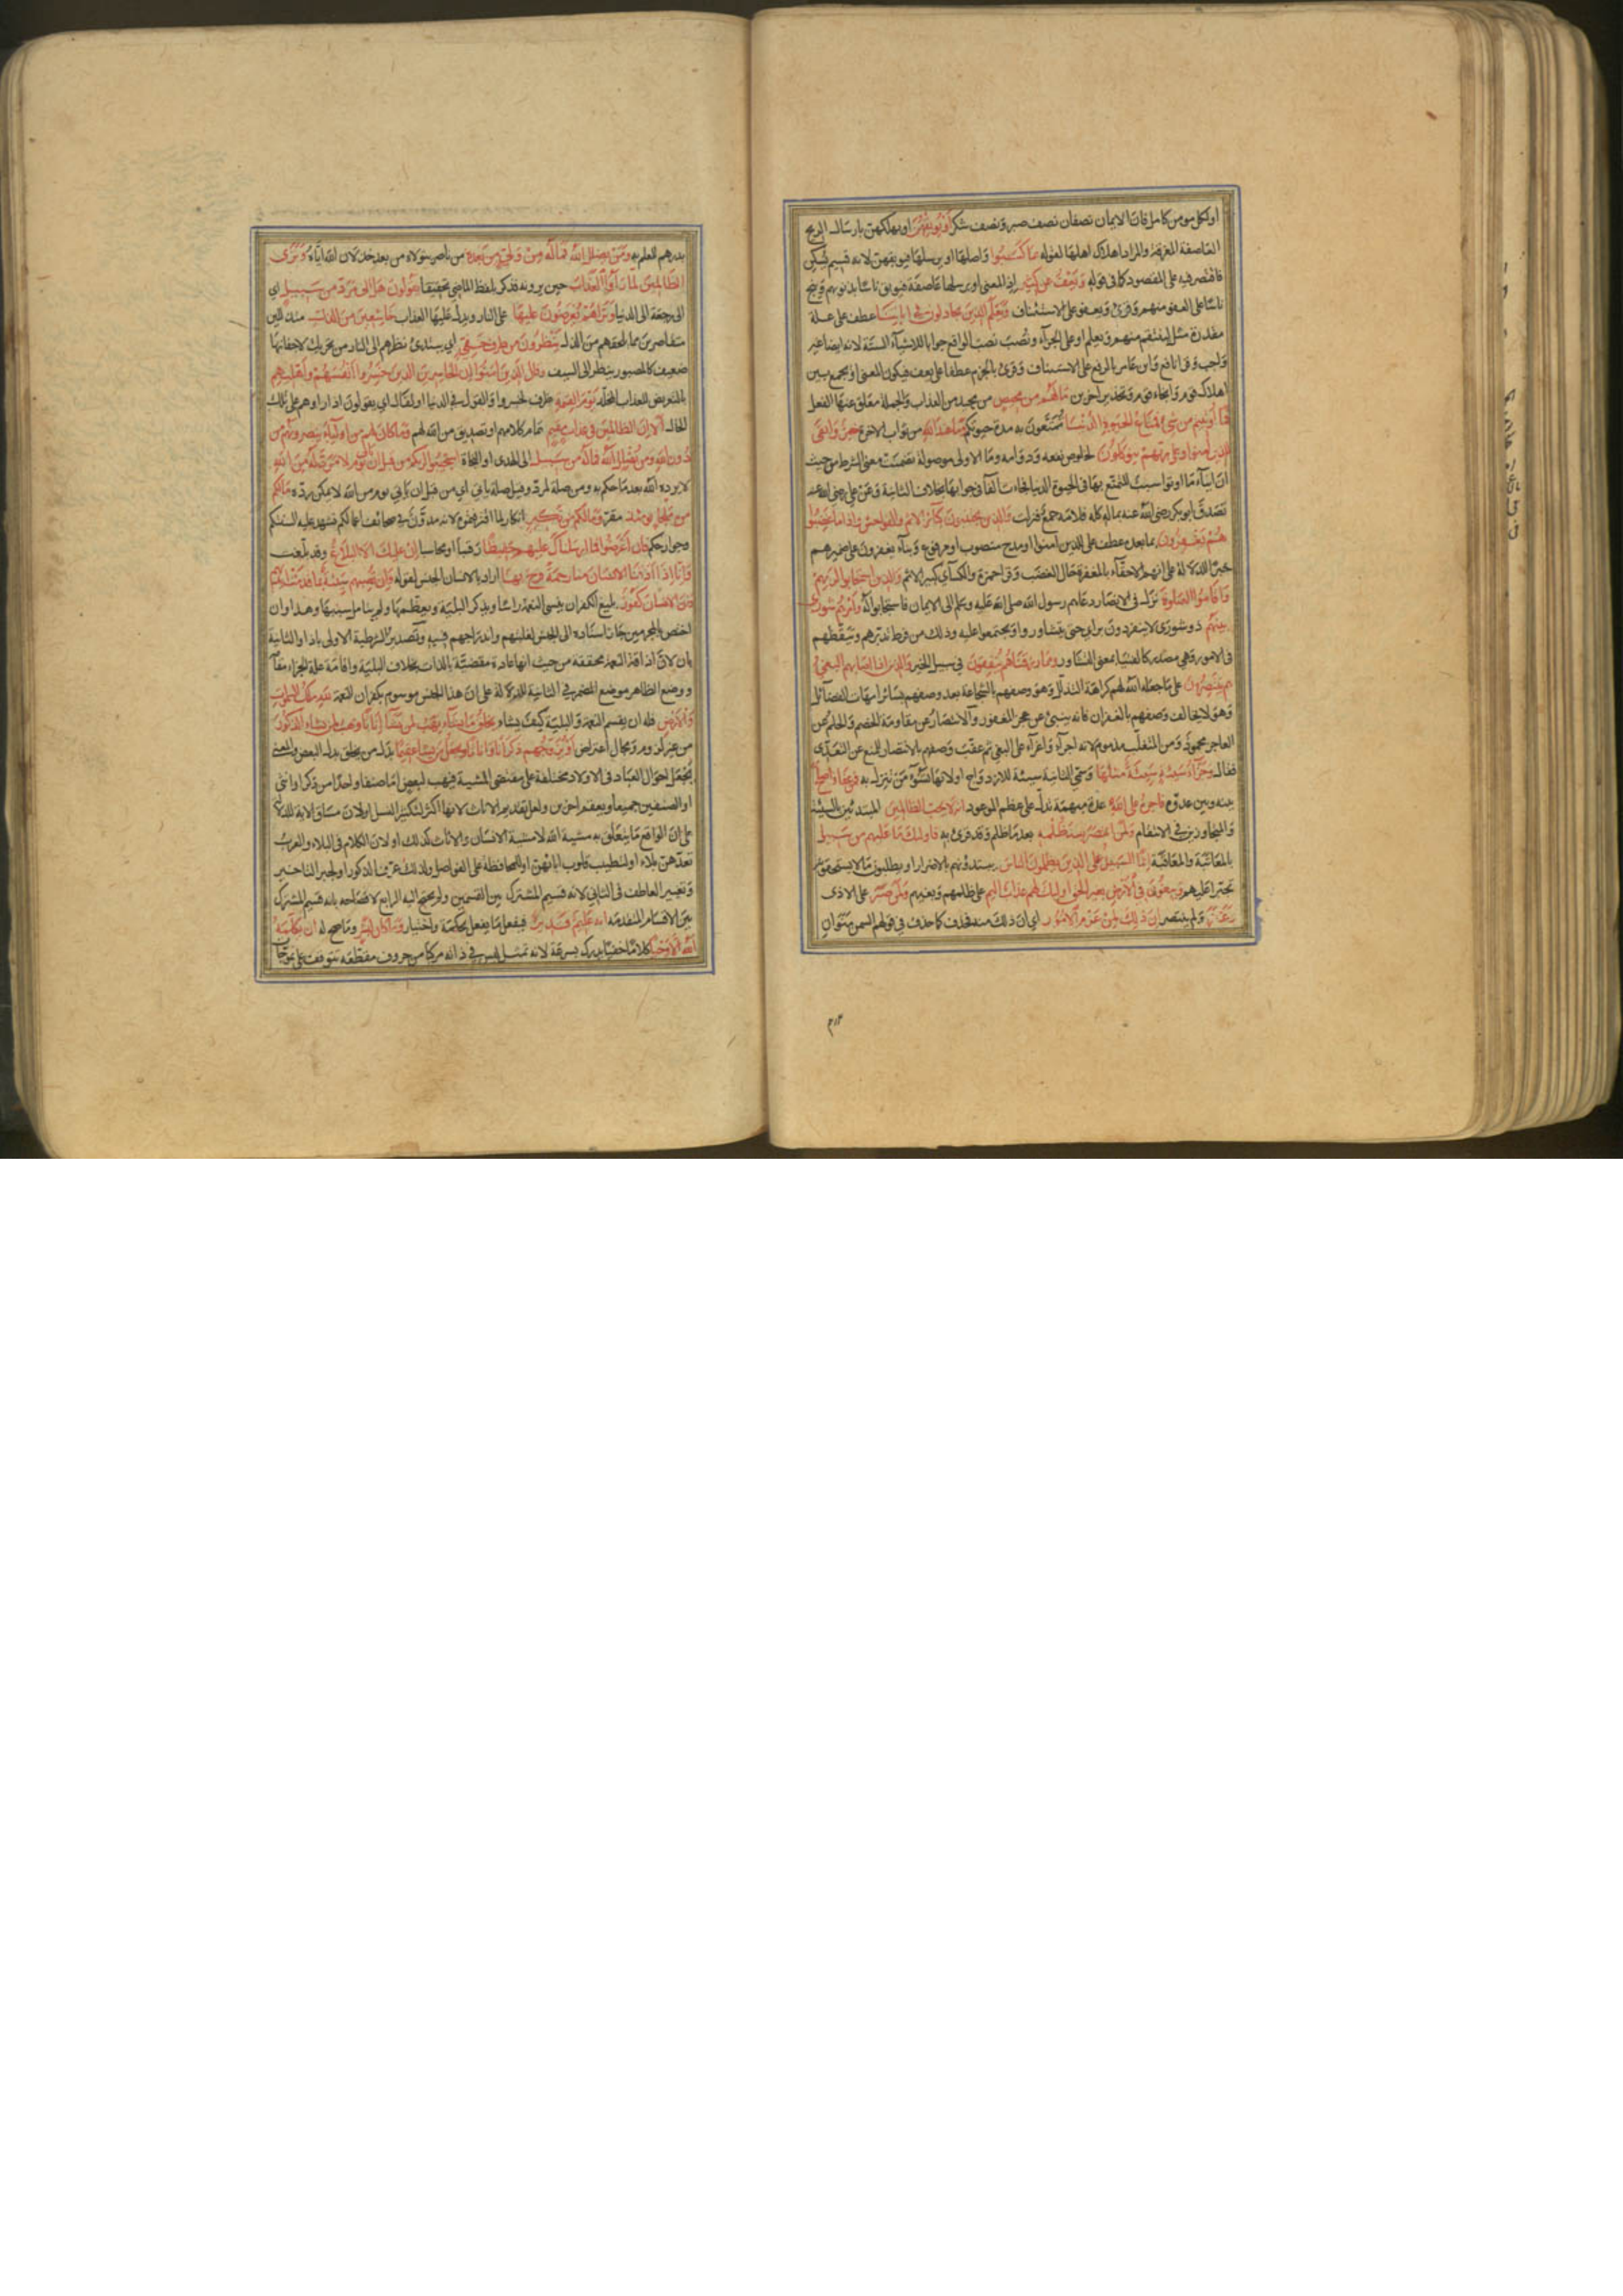 او لكل مومن كامل فان الايمان نصفان نصف صبر ونصف شكر أَوْ يُوبِقْهُنَّ او يهلكهن بارسال الريح
العاصفة المغرقة والمراد اهلاك اهلها لقوله بِمَا كَسَبُوا واصلها او يرسلها فيوبقهن لانه قسيم يسكن
فاقتصر فيه على المقصود كما في قوله وَيَعْفُ عَن كَثِيرٍ اذ المعنى او يرسلها عاصفة فيوبق ناسا بذنوبهم وينج
ناسا على العفو منهم وقرئ ويعفو على الاستئناف وَيَعْلَمَ الَّذِينَ يُجَادِلُونَ فِي آيَاتِنَا عطف على علة
مقدرة مثل لينتقم منهم ويعلم او على الجزآء ونصب نصب الواقع جوابا للاشيآء الستة لانه ايضا غير
واجب وقرا نافع وابن عامر بالرفع على الاستيناف وقرئ بالجزم عطفا على يعف فيكون المعنى او يجمع بين
اهلاك قوم وانجاء قوم وتحذير اخرين مَا لَهُم مِن مَحِيصٍ من محيد من العذاب والجملة معلق عنها الفعل
فَمَا أُوتِيتُم مِن شَيْءٍ فَمَتَاعُ الْحَيٰوةِ الدُّنْيَا تمتعون به مدة حيوتكم وَمَا عِنْدَ اللَّهِ من ثواب الاخرة خَيْرٌ وَأَبْقَى
لِلَّذِينَ آمَنُوا وَعَلَى رَبِّهِمْ يَتَوَكَّلُونَ لخلوص نفعه ودوامه وما الاولى موصولة تضمنت معنى الشرط من حيث
ان ايتآء ما اوتوا سبب للتمتع بها في الحيوة الدنيا فجاءت الفآ في جوابها بخلاف الثانية وعن علي رضي الله عنه
تصدق ابو بكر رضي الله عنه بماله كله فلامه جمع فنزلت وَالَّذِينَ يَجْتَنِبُونَ كَبَآئِرَ الْاِثْمِ وَالْفَوَاحِشَ وَإِذَا مَا غَضِبُوا
هُمْ يَغْفِرُونَ بما بعده عطف على للذين آمنوا او مدح منصوب او مرفوع وبناء يغفرون على ضميرهم
خبرا للدلالة على انهم الاحقآء بالمغفرة حال الغضب وقرا حمزة والكسآي كبير الاثم وَالَّذِينَ اسْتَجَابُوا لِرَبِّهِمْ
وَأَقَامُوا الصَّلٰوةَ نزل في الانصار دعاهم رسول الله صلى الله عليه وسلم الى الايمان فاستجابوا له وَأَمْرُهُمْ شُورَى
بَيْنَهُمْ ذو شورى لا ينفردون براي حتى يتشاوروا ويجتمعوا عليه وذلك من فرط تدبرهم وتيقظهم
في الامور وهي مصدر كالفتيا بمعنى التشاور وَمِمَّا رَزَقْنَاهُمْ يُنْفِقُونَ في سبيل الخير وَالَّذِينَ إِذَا أَصَابَهُمُ الْبَغْيُ
هُمْ يَنْتَصِرُونَ على ما جعله الله لهم كراهة التذلل وهو وصفهم بالشجاعة بعد وصفهم بسائر امهات الفضائل
وهو لا يخالف وصفهم بالغفران فانه ينبئ عن عجز المغفور والانتصار عن مقاومة الخصم والحلم عن
العاجز محمود وعن المتغلب مذموم لانه اجرآء واغرآء على البغي ثم عقب وصفهم بالانتصار للمنع عن التعدي
فقال وَجَزَآءُ سَيِّئَةٍ سَيِّئَةٌ مِثْلُهَا وسمى الثانية سيئة للازدواج او لانها تسوء من تنزل به فَمَنْ عَفَا وَأَصْلَحَ
بينه وبين عدوه فَأَجْرُهُ عَلَى اللَّهِ عدة مبهمة تدل على عظم الموعود إِنَّهُ لَا يُحِبُّ الظَّالِمِينَ المبتدئين بالسيئة
والمتجاوزين في الانتقام وَلَمَنِ انْتَصَرَ بَعْدَ ظُلْمِهِ بعد ما ظلم وقد قرئ به فَأُولَئِكَ مَا عَلَيْهِم مِن سَبِيلٍ
بالمعاتبة والمعاقبة إِنَّمَا السَّبِيلُ عَلَى الَّذِينَ يَظْلِمُونَ النَّاسَ يبتدؤنهم بالاضرار او يطلبون ما لا يستحقونه
تجبرا عليهم وَيَبْغُونَ فِي الْأَرْضِ بِغَيْرِ الْحَقِّ أُولَئِكَ لَهُمْ عَذَابٌ أَلِيمٌ على ظلمهم وبغيهم وَلَمَنْ صَبَرَ على الاذى
وَغَفَرَ ولم ينتصر إِنَّ ذَلِكَ لَمِنْ عَزْمِ الْأُمُورِ اي ان ذلك منه فحذف كما حذف في قولهم السمن منوان
بدرهم للعلم به وَمَنْ يُضْلِلِ اللَّهُ فَمَا لَهُ مِنْ وَلِيٍّ مِنْ بَعْدِهِ من ناصر يتولاه من بعد خذلان الله اياه وَتَرَى
الظَّالِمِينَ لَمَّا رَأَوُا الْعَذَابَ حين يرونه فذكر بلفظ الماضي تحقيقا يَقُولُونَ هَلْ إِلَى مَرَدٍّ مِنْ سَبِيلٍ اي
الى رجعة الى الدنيا وَتَرَاهُمْ يُعْرَضُونَ عَلَيْهَا على النار ويدل عليها العذاب خَاشِعِينَ مِنَ الذُّلِّ متذللين
متقاصرين مما يلحقهم من الذل يَنْظُرُونَ مِنْ طَرْفٍ خَفِيٍّ اي يبتدئ نظرهم الى النار من تحريك لاجفانها
ضعيف كالمصبور ينظر الى السيف وَقَالَ الَّذِينَ آمَنُوا إِنَّ الْخَاسِرِينَ الَّذِينَ خَسِرُوا أَنْفُسَهُمْ وَأَهْلِيهِمْ
بالتعريض للعذاب المخلد يَوْمَ الْقِيٰمَةِ ظرف لخسروا والقول في الدنيا او لقال اي يقولون اذا راوهم على تلك
الحال أَلَا إِنَّ الظَّالِمِينَ فِي عَذَابٍ مُقِيمٍ تمام كلامهم او تصديق من الله لهم وَمَا كَانَ لَهُمْ مِنْ أَوْلِيَاءَ يَنْصُرُونَهُمْ مِنْ
دُونِ اللَّهِ وَمَنْ يُضْلِلِ اللَّهُ فَمَا لَهُ مِنْ سَبِيلٍ الى الهدى او النجاة اسْتَجِيبُوا لِرَبِّكُمْ مِنْ قَبْلِ أَنْ يَأْتِيَ يَوْمٌ لَا مَرَدَّ لَهُ مِنَ اللَّهِ
لا يرده الله بعد ما حكم به ومن صلة لمرد وقيل صلة ياتي اي من قبل ان ياتي يوم من الله لا يمكن رده مَا لَكُمْ
مِنْ مَلْجَإٍ يَوْمَئِذٍ مفر وَمَا لَكُمْ مِنْ نَكِيرٍ انكار لما اقترفتموه لانه مدون في صحائف اعمالكم تشهد عليه السنتكم
وجوارحكم فَإِنْ أَعْرَضُوا فَمَا أَرْسَلْنَاكَ عَلَيْهِمْ حَفِيظًا رقيبا او محاسبا إِنْ عَلَيْكَ إِلَّا الْبَلَاغُ وقد بلغت
وَإِنَّا إِذَا أَذَقْنَا الْإِنْسَانَ مِنَّا رَحْمَةً فَرِحَ بِهَا اراد بالانسان الجنس لقوله وَإِنْ تُصِبْهُمْ سَيِّئَةٌ بِمَا قَدَّمَتْ أَيْدِيهِمْ
فَإِنَّ الْإِنْسَانَ كَفُورٌ بليغ الكفران ينسى النعمة راسا ويذكر البلية ويعظمها ولم يتامل سببها وهذا وان
اختص بالمجرمين جاز اسناده الى الجنس لغلبتهم واندراجهم فيه وتصدير الشرطية الاولى باذا والثانية
بان لان اذاقة النعمة محققة من حيث انها عادة مقتضية بالذات بخلاف البلية واقامة علة الجزاء مقامه
ووضع الظاهر موضع المضمر في الثانية للدلالة على ان هذا الجنس موسوم بكفران النعمة لِلَّهِ مُلْكُ السَّمٰوَاتِ
وَالْأَرْضِ فله ان يقسم النعمة والبلية كيف يشاء يَخْلُقُ مَا يَشَاءُ يَهَبُ لِمَنْ يَشَآءُ إِنَاثًا وَيَهَبُ لِمَنْ يَشَاءُ الذُّكُورَ
من غير لزوم ومجال اعتراض أَوْ يُزَوِّجُهُمْ ذُكْرَانًا وَإِنَاثًا وَيَجْعَلُ مَنْ يَشَاءُ عَقِيمًا بدل من يخلق بدل البعض والمعنى
يجعل احوال العباد في الاولاد مختلفة على مقتضى المشية فيهب لبعض اما صنفا واحدا من ذكر او انثى
او الصنفين جميعا ويعقم اخرين ولعل تقديم الاناث لانها اكثر لتكثير النسل او لان مساق الاية للدلالة
على ان الواقع ما يتعلق به مشية الله لا مشية الانسان والاناث كذلك او لان الكلام في البلاء والعرب
تعدهن بلاء او لتطييب قلوب ابائهن او للمحافظة على الفواصل ولذلك عرف الذكور او لجبر التاخير
وتغيير العاطف في الثاني لانه قسيم المشترك بين القسمين ولم يحتج اليه الرابع لافصاحه بانه قسيم المشترك
بين الاقسام المتقدمة إِنَّهُ عَلِيمٌ قَدِيرٌ فيفعل ما يفعل بحكمة واختيار وَمَا كَانَ لِبَشَرٍ وما صح له أَنْ يُكَلِّمَهُ
اللَّهُ إِلَّا وَحْيًا كلاما خفيا يدرك بسرعة لانه تمثل ليس في ذاته مركبا من حروف مقطعة تتوقف على تموجات